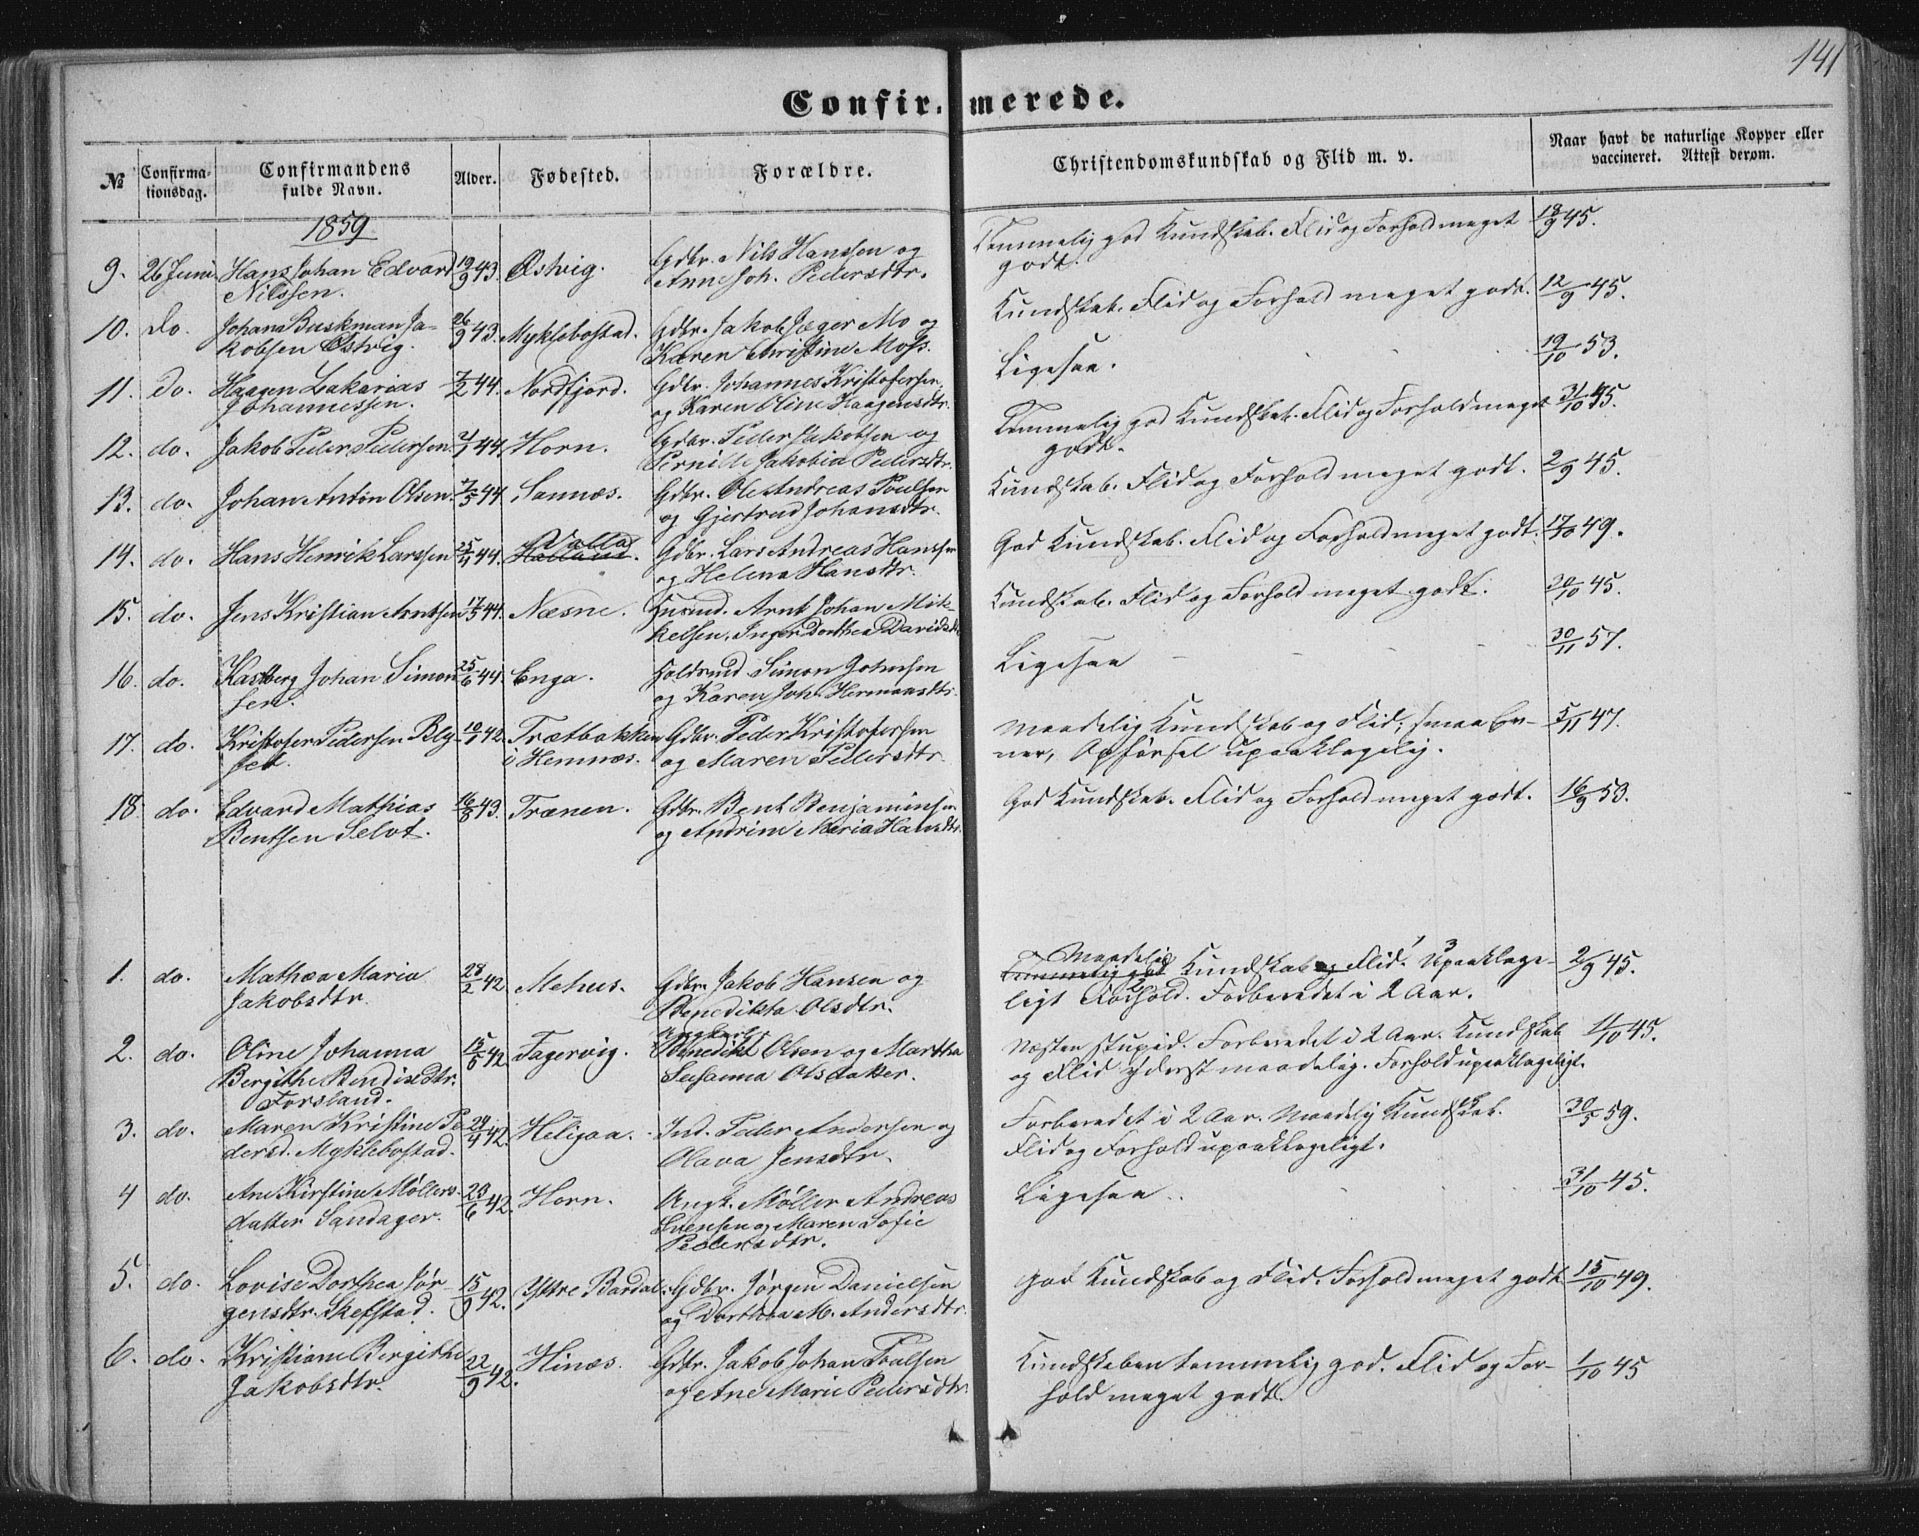 141
Confirmerede.
№ Confirmationsdag. Confirmandens fulde Navn. Alder. Fødested. Forældre. Christendomskundskab og Flid m. v. Naar havt de naturlige Kopper eller vaccineret. Attest derom.
1859
9. 26 Juni Hans Johan Edvard 19/9 43. Østvig. Gdbr. Nils Hanssen og Temmelig god Kundskab. Flid og Forhold meget 18/9 45.
Nilssen. Anne Joh. Pedersdtr. godt.
10. do. Johans Buskman Ja- 26/9 43. Myklebostad. Gdbr. Jakob Jæger Mo og Kundskab. Flid og Forhold meget godt. 12/9 45.
kobsen Østvig. Karen Christine Mofs.
11. do. Haagen Zakarias 7/2 44. Nordfjord. Gdbr. Johannes Kristofersen Ligesaa. 19/10 53.
Johannessen. og Karen Oline Haagensdtr.
12. do. Jakob Peder Pedersen 2/1 44. Horn. Gdbr. Peder Jakobsen og Temmelig god Kundskab. Flid og Forhold meget 31/10 45.
Pernille Jakobia Pedersdtr. godt.
13. do. Johan Anton Olsen. 7/5 44. Sannæs. Gdbr. Ole Andreas Poulsen Kundskab. Flid og Forhold meget godt. 2/9 45.
og Gjertrud Johansdtr.
14. do. Hans Henrik Larssen 25/4 44. Valla. Gdbr. Lars Andreas Hanssen God Kundskab. Flid og Forhold meget godt. 17/10 49.
og Helena Hansdtr.
15. do. Jens Kristian Arntsen 17/5 44. Næsne. Husmd. Arnt Johan Mik- Kundskab. Flid og Forhold meget godt. 20/10 45.
kelsen, Inger Dorthea Davidsdtr.
16. do. Kastberg Johan Simon- 25/6 44. Enga. Simon Johnsen Ligesaa 30/11 57.
sen. og Karen Joh. Hermansdtr.
17. do. Kristofer Pedersen Bly- 10/1 42. Trætbakken Gdbr. Peder Kristofersen Maadelig Kundskab og Flid, smaa Ev- 5/11 47.
set. i Hemnæs. og Maren Pedersdtr. ner, Opførsel upaaklagelig.
18. do. Edvard Mathias 16/8 43. Trænen. Gdbr. Bent Benjaminsen God Kundskab. Flid og Forhold meget godt. 16/9 53.
Bentsen Selvt. og Andrine Maria Hansdtr.
1. do. Mathæa Maria 28/2 42. Mehus. Gdbr. Jakob Hansen og Maadelig Temmelig god Kundskab og Flid. Upaaklage- 2/9 45.
Jakobsdtr. Benedikta Olsdtr. ligt Forhold. Forberedet i 2 Aar.
2. do. Oline Johanna 13/5 42. Fagervig. Benedikt Olsen og Martha Næsten stupid. Forberedet i 2 Aar. Kundskab 11/10 45.
Bergithe Bendiksdtr. Susanna Olsdatter. og Flid yderst maadelig. Forhold upaaklageligt.
Forsland.
3. do. Maren Kristine Pe- 24/4 42. Heligaa. Ind. Peder Andersen og Forberedet i 2 Aar. Maadelig Kundskab. 30/5 59.
dersd. Myklebostad. Olava Jensdtr. Flid og Forhold upaaklageligt.
4 do. Ane Kirstine Møllers- 23/6 42. Horn. Ungk. Møller Andreas Ligesaa. 31/10 45.
datter Sandager. Svensen og Maren Sofie
Pedersdtr.
5. do. Lovise Dorthea Jør- 15/9 42. Ystre Bardal. Gdbr. Jørgen Danielsen God Kundskab og Flid. Forhold meget godt 15/10 49.
gensdtr. Skefstad. og Dorthea M. Andersdtr.
6. do. Kristiane Bergithe 22/9 42. Hinæs. Gdbr. Jakob Johan Poulsen Kundskaben temmelig god. Flid og For- 1/10 45
Jakobsdtr. og Ane Marie Pedersdtr. hold meget godt.